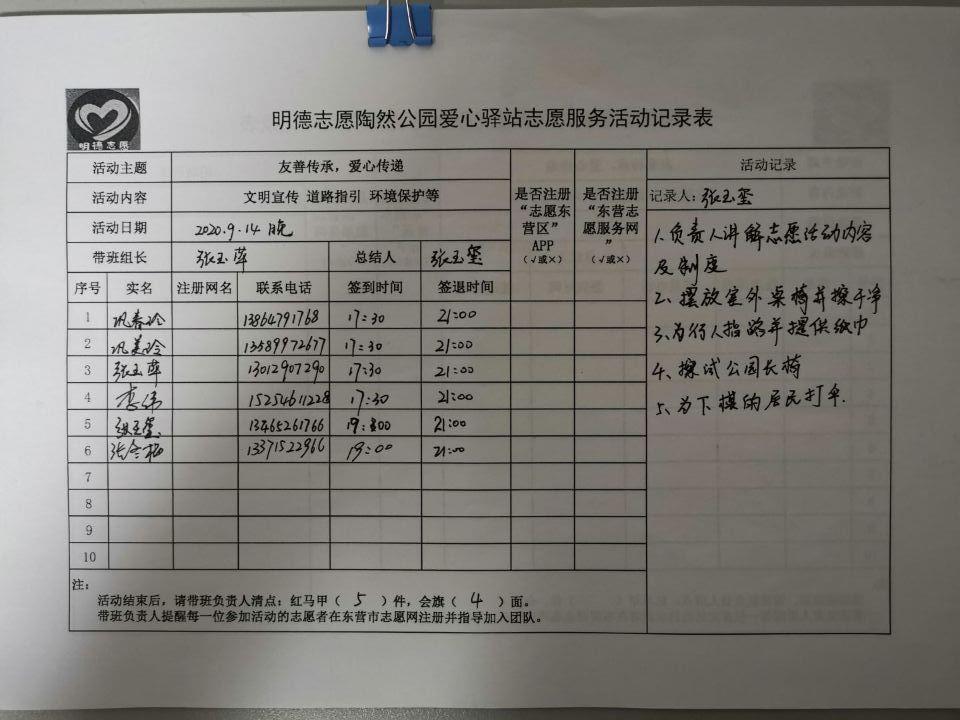 明德志愿
明德志愿陶然公园爱心驿站志愿服务活动记录表
活动主题 友善传承，爱心传递
活动内容 文明宣传 道路指引 环境保护等
活动日期 2020.9.14 晚
带班组长 张玉萍 总结人 张玉玺
是否注册
“志愿东
营区”
APP
（√或×）
是否注册
“东营志
愿服务网
”
（√或×）
序号 实名 注册网名 联系电话 签到时间 签退时间
1 巩春玲 13864791768 17:30 21:00
2 巩美玲 13589972677 17:30 21:00
3 张玉萍 13012907290 17:30 21:00
4 李伟 15254611228 17:30 21:00
5 张玉玺 13465261766 21:00
6 13371522966 19:00 21:00
7
8
9
10
活动记录
记录人：张玉玺
1、负责人讲解志愿活动内容
及制度
2、摆放室外桌椅并擦干净
3、为行人指路并提供纸巾
4、擦试公园长椅
5、为下棋的居民打伞.
注：
活动结束后，请带班负责人清点：红马甲（ 5 ）件，会旗（ 4 ）面。
带班负责人提醒每一位参加活动的志愿者在东营市志愿网注册并指导加入团队。